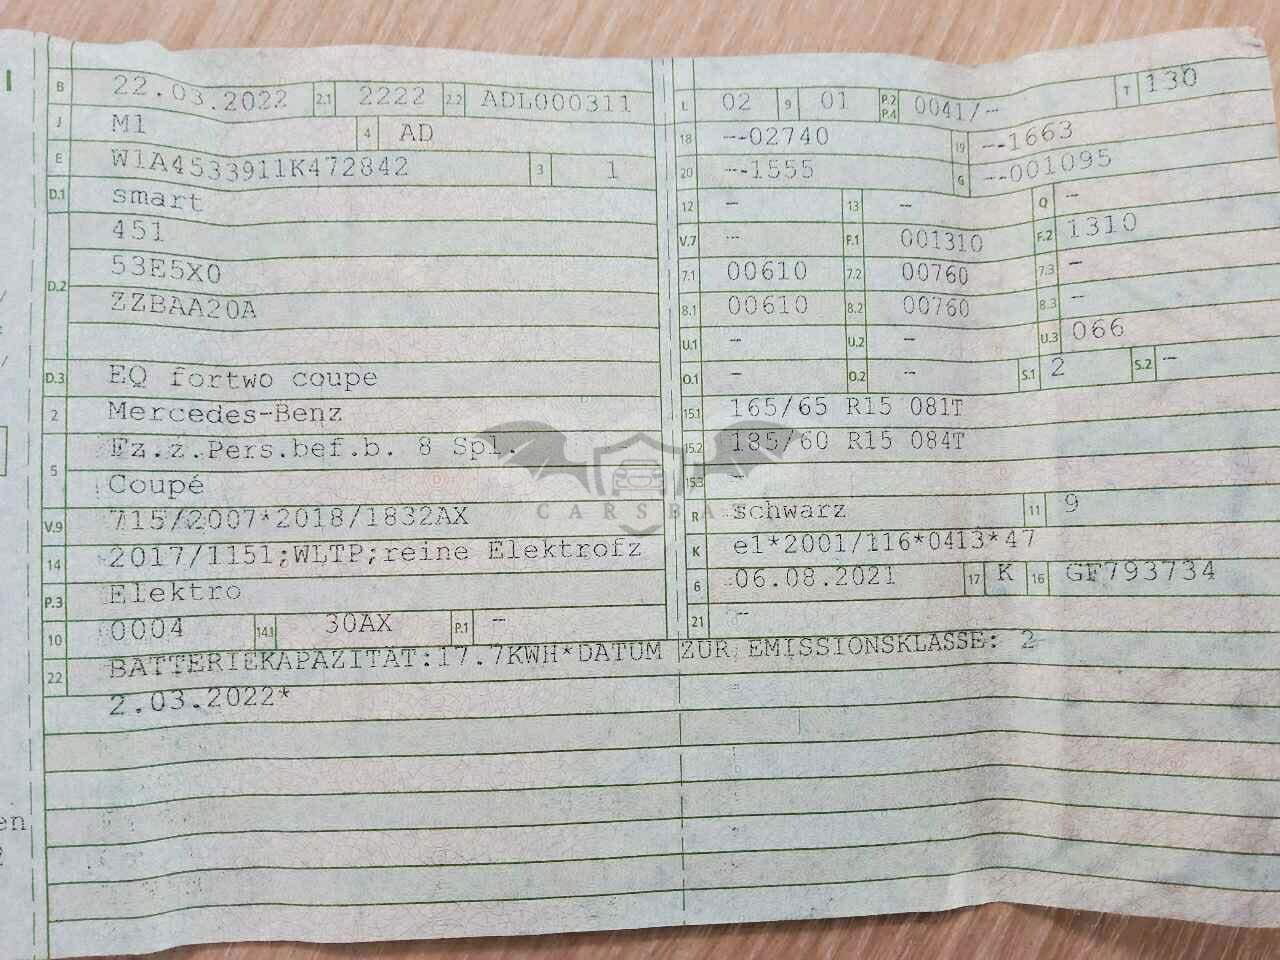 B 22.03.2022 2.1 2222 2.2 ADL000311
J M1 4 AD
E W1A4533911K472842 3 1
D.1 smart
451
D.2 53E5X0
ZZBAA20A
D.3 EQ fortwo coupe
2 Mercedes-Benz
5 Fz.z.Pers.bef.b. 8 Spl.
Coupé
V.9 715/2007*2018/1832AX
14 2017/1151;WLTP;reine Elektrofz
P.3 Elektro
10 0004 14.1 30AX P.1 -
L 02 9 01 P.2 P.4 0041/- T 130
18 --02740 19 --1663
20 --1555 G --001095
12 - 13 - Q -
V.7 - F.1 001310 F.2 1310
7.1 00610 7.2 00760 7.3 -
8.1 00610 8.2 00760 8.3 -
U.1 - U.2 - U.3 066
O.1 - O.2 - S.1 2 S.2 -
15.1 165/65 R15 081T
15.2 185/60 R15 084T
15.3 -
R schwarz 11 9
K e1*2001/116*0413*47
6 06.08.2021 17 K 16 GF793734
21 -
22 BATTERIEKAPAZITÄT:17.7KWH*DATUM ZUR EMISSIONSKLASSE: 2
2.03.2022*
CARSBA
en